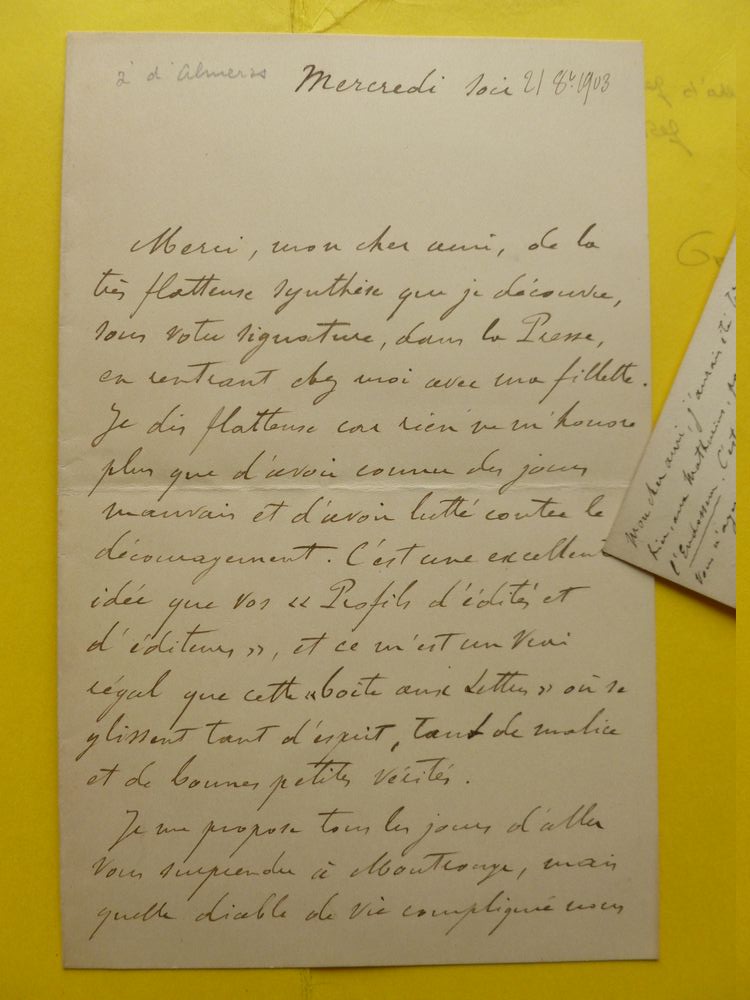 à d'Almeras
Mercredi soir 21 8bre 1903
Merci, mon cher ami, de la
très flatteuse synthèse que je découvre,
sous votre signature, dans la Presse,
en rentrant chez moi avec ma fillette.
Je dis flatteuse car rien ne m'honore
plus que d'avoir connu des jours
mauvais et d'avoir lutté contre le
découragement. C'est une excellente
idée que vos « Profils d'édités et
d'éditeurs », et ce m'est un vrai
régal que cette « boîte aux Lettres » où se
glissent tant d'esprit, tant de malice
et de bonnes petites vérités.
Je me propose tous les jours d'aller
vous surprendre à Montrouge, mais
quelle diable de vie compliquée nous
Mon cher ami, j'aurais été
bien, aux Mathurins,
l'Endosseur. C'est
Vous n'avez